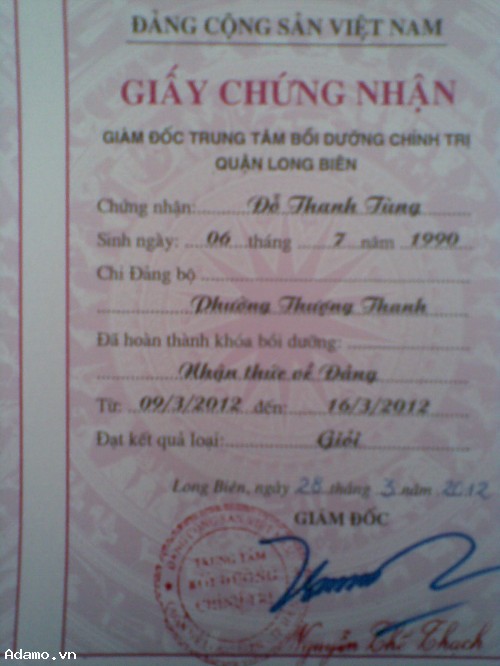 ĐẢNG CỘNG SẢN VIỆT NAM
GIẤY CHỨNG NHẬN
GIÁM ĐỐC TRUNG TÂM BỒI DƯỠNG CHÍNH TRỊ
QUẬN LONG BIÊN
Chứng nhận: Đỗ Thanh Tùng
Sinh ngày: 06 tháng 7 năm 1990
Chi Đảng bộ
Phường Thượng Thanh
Đã hoàn thành khóa bồi dưỡng:
Nhận thức về Đảng
Từ: 09/3/2012 đến: 16/3/2012
Đạt kết quả loại: Giỏi
Long Biên, ngày 28 tháng 3 năm 2012
GIÁM ĐỐC
TRUNG TÂM
BỒI DƯỠNG
CHÍNH TRỊ
Nguyễn Thế Thạch
Adamo.vn